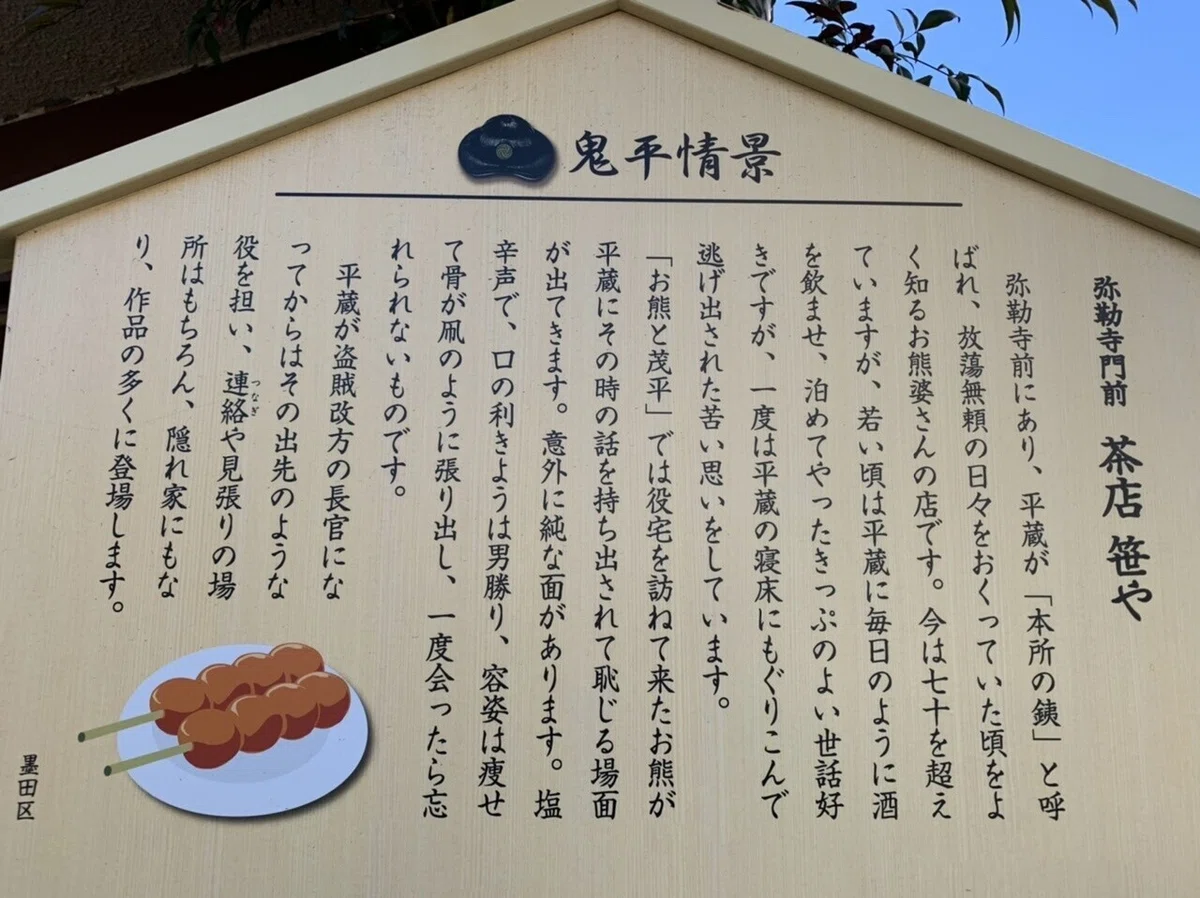 鬼平情景
弥勒寺門前 茶店 笹や
弥勒寺前にあり、平蔵が「本所の銕」と呼
ばれ、放蕩無頼の日々をおくっていた頃をよ
く知るお熊婆さんの店です。今は七十を超え
ていますが、若い頃は平蔵に毎日のように酒
を飲ませ、泊めてやったきっぷのよい世話好
きですが、一度は平蔵の寝床にもぐりこんで
逃げ出された苦い思いをしています。
「お熊と茂平」では役宅を訪ねて来たお熊が
平蔵にその時の話を持ち出されて恥じる場面
が出てきます。意外に純な面があります。塩
辛声で、口の利きようは男勝り、容姿は痩せ
て骨が凧のように張り出し、一度会ったら忘
れられないものです。
平蔵が盗賊改方の長官にな
ってからはその出先のような
役を担い、連絡や見張りの場
つなぎ
所はもちろん、隠れ家にもな
り、作品の多くに登場します。
墨田区